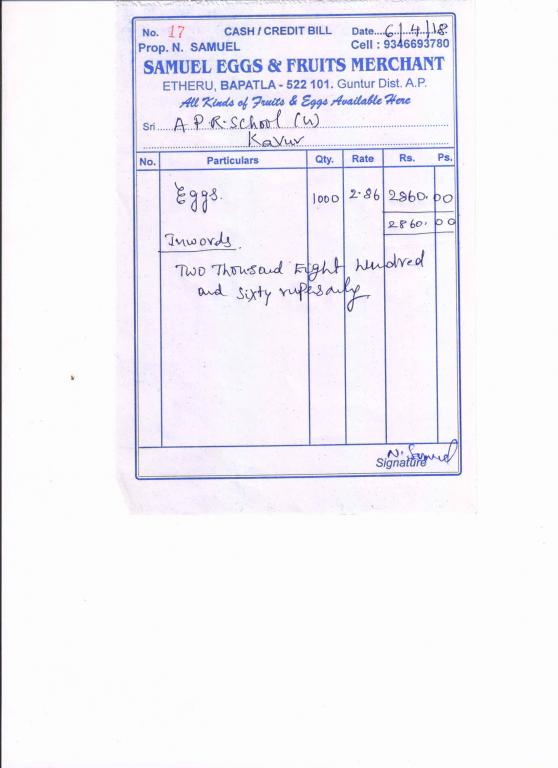 No. 17 CASH / CREDIT BILL Date...6/4/18
Prop. N. SAMUEL Cell : 9346693780
SAMUEL EGGS & FRUITS MERCHANT
ETHERU, BAPATLA - 522 101. Guntur Dist. A.P.
All Kinds of Fruits & Eggs Available Here
Sri A P R. School (U)
Kavur
No. Particulars Qty. Rate Rs. Ps.
Eggs. 1000 2.86 2860. 00
2860. 00
Inwords.
Two Thousand Eight hundred
and sixty rupesonly
N. Samuel
Signature